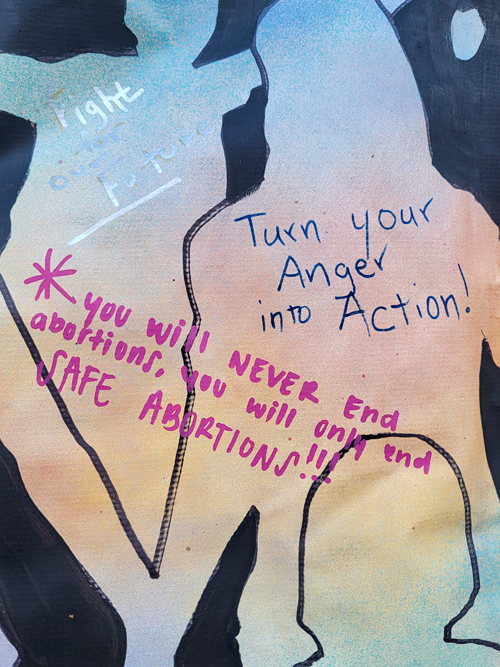 Fight
for
our
Future
Turn your
Anger
into Action!
* you will NEVER End
abortions, you will only end
SAFE ABORTIONS!!!